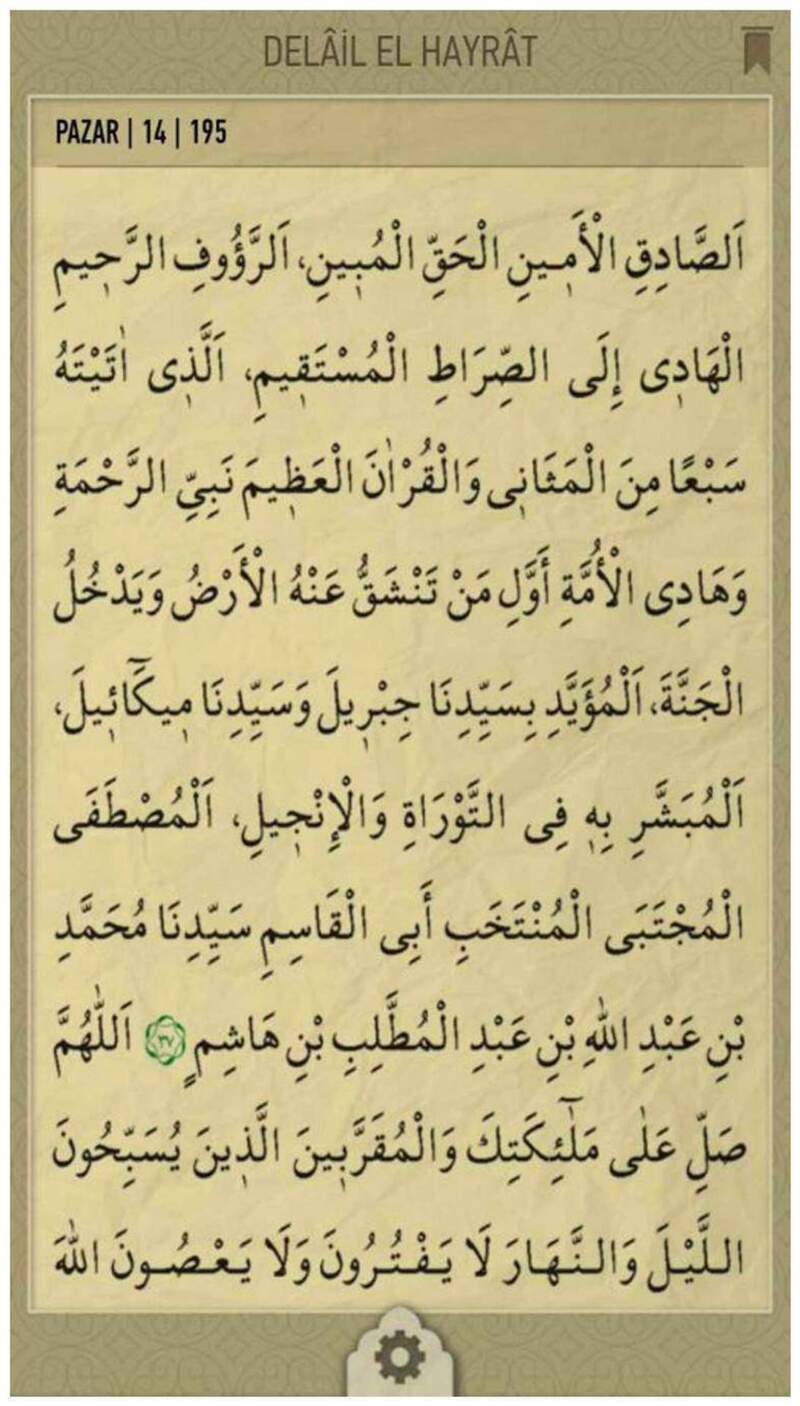 DELÂİL EL HAYRÂT
PAZAR | 14 | 195
اَلصَّادِقِ الْأَمِينِ الْحَقِّ الْمُبِينِ، اَلرَّؤُوفِ الرَّحِيمِ
الْهَادِى إِلَى الصِّرَاطِ الْمُسْتَقِيمِ، اَلَّذِى اٰتَيْتَهُ
سَبْعًا مِنَ الْمَثَانِى وَالْقُرْاٰنَ الْعَظِيمَ نَبِيِّ الرَّحْمَةِ
وَهَادِى الْأُمَّةِ أَوَّلِ مَنْ تَنْشَقُّ عَنْهُ الْأَرْضُ وَيَدْخُلُ
الْجَنَّةَ، اَلْمُؤَيَّدِ بِسَيِّدِنَا جِبْرِيلَ وَسَيِّدِنَا مِيكَٓائِيلَ،
اَلْمُبَشَّرِ بِهِ فِى التَّوْرَاةِ وَالْإِنْجِيلِ، اَلْمُصْطَفَى
الْمُجْتَبَى الْمُنْتَخَبِ أَبِى الْقَاسِمِ سَيِّدِنَا مُحَمَّدِ
بْنِ عَبْدِ اللّٰهِ بْنِ عَبْدِ الْمُطَّلِبِ بْنِ هَاشِمٍ ٣٧ اَللّٰهُمَّ
صَلِّ عَلٰى مَلٰٓئِكَتِكَ وَالْمُقَرَّبِينَ الَّذِينَ يُسَبِّحُونَ
اللَّيْلَ وَالنَّهَارَ لَا يَفْتُرُونَ وَلَا يَعْصُونَ اللّٰهَ